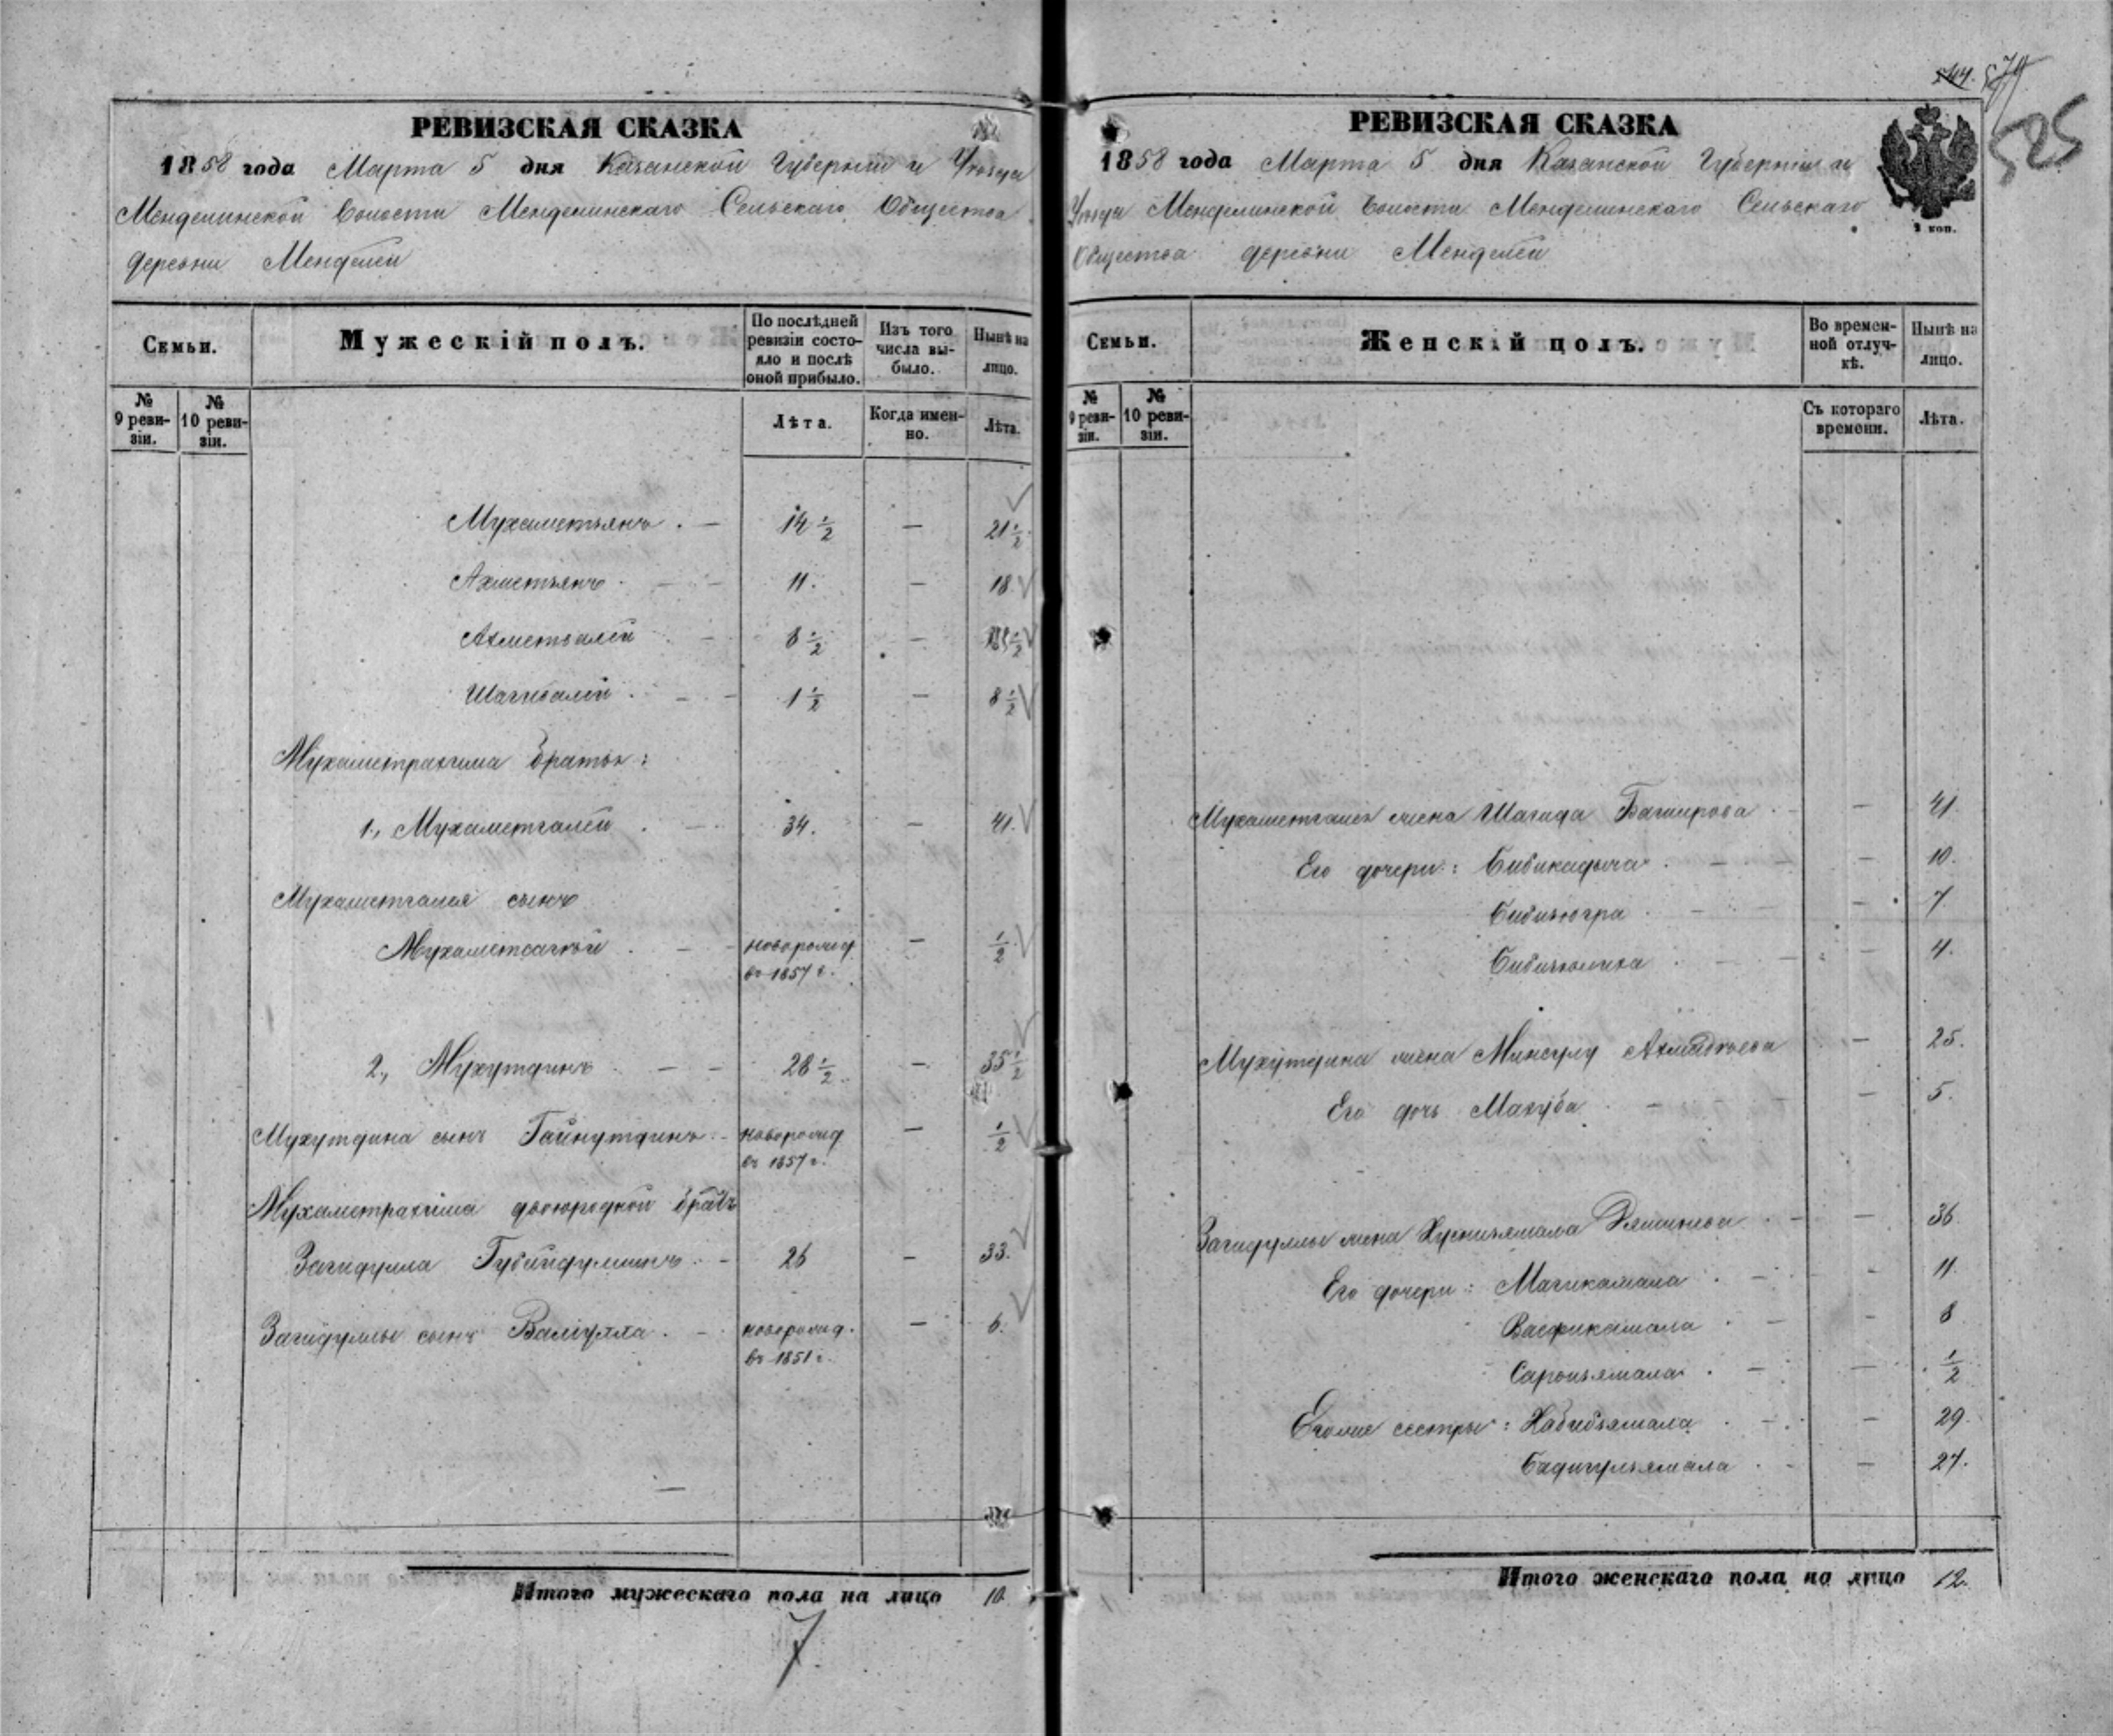 РЕВИЗСКАЯ СКАЗКА
1858 года Марта 5 дня Казанской Губерніи и Уѣзда
Менделинской Волости Менделинскаго Сельскаго Общества
деревни Менделей
Семьи.
Мужескій полъ.
По послѣдней ревизіи состояло и послѣ оной прибыло.
Изъ того числа выбыло.
Нынѣ на лицо.
№ 9 ревизіи.
№ 10 ревизіи.
Лѣта.
Когда именно.
Лѣта.
Мухаметьянъ . — 14 1/2 — 21 1/2
Ахметьянъ . — 11. — 18
Ахметвалей — 8 1/2 — 15 1/2
Шагивалей . — 1 1/2 — 8 1/2
Мухаметрахима братья:
1., Мухаметгалей . — 34. — 41.
Мухаметгалея сынъ
новорожд. — 1/2
въ 1857 г.
2., Мухутдинъ — 28 1/2 — 35 1/2
Мухутдина сынъ Гайнутдинъ — новорожд — 1/2
въ 1857 г.
Мухаметрахима двоюродной братъ
Загидулла Губайдуллинъ — 26 — 33.
Загидуллы сынъ Валиулла . — новорожд. — 6.
въ 1851 г.
Итого мужескаго пола на лицо 10
7
544.
525
РЕВИЗСКАЯ СКАЗКА
1858 года Марта 5 дня Казанской Губерніи и
Уѣзда Менделинской Волости Менделинскаго Сельскаго
Общества деревни Менделей
2 коп.
Семьи.
Женскій полъ.
Во временной отлучкѣ.
Нынѣ на лицо.
№ 9 ревизіи.
№ 10 ревизіи.
Съ котораго времени.
Лѣта.
Мухаметгалея жена Шагида Баширова . — 41.
Его дочери: Бибикадыча . — 10.
Бибизюгра . — 7
4.
Мухутдина жена Минсулу — 25.
Его дочь Махуба . — 5.
Загидуллы жена Хуснизямала — 36
Его дочери: Магикамала . — 11.
Васфикамала . — 8
1/2
Егоже сестры: Хабибзямала . — 29.
Бадигульзямала . — 27.
Итого женскаго пола на лицо 12.